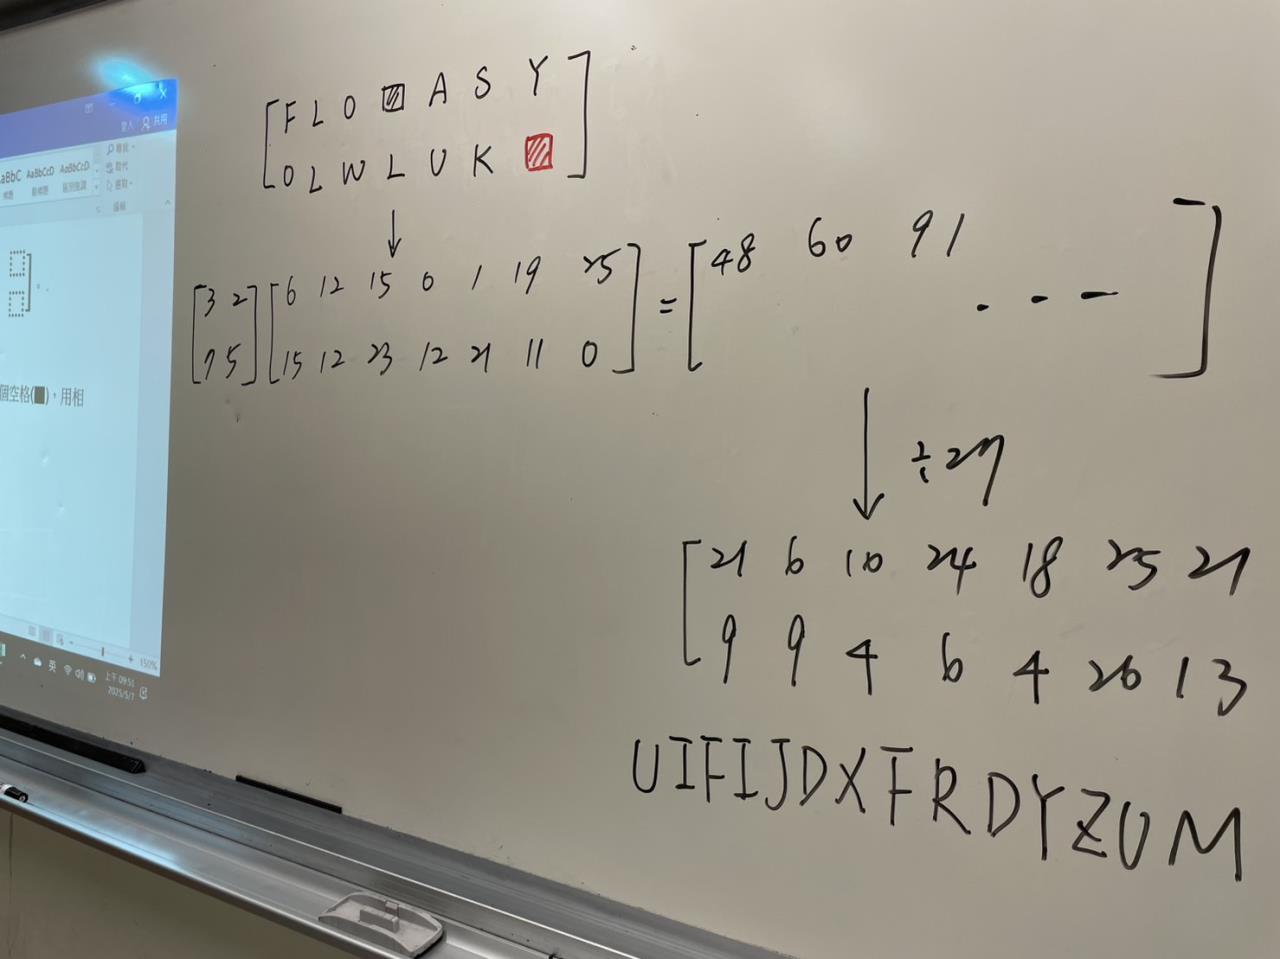 F L O ▨ A S Y
O L W L U K ▨
↓
[3 2] [6 12 15 0 1 19 25] = [48 60 91
[7 5] [15 12 23 12 21 11 0] . - - ]
↓ ÷27
[21 6 10 24 18 25 21
9 9 4 6 4 26 13
UIFIJDXFRDYZUM
登入 共用
AaBbC AaBbCcD AaBbCcD
尋找
取代
選取
編輯
個空格(■),用相
150%
英
上午 09:51
2025/5/7